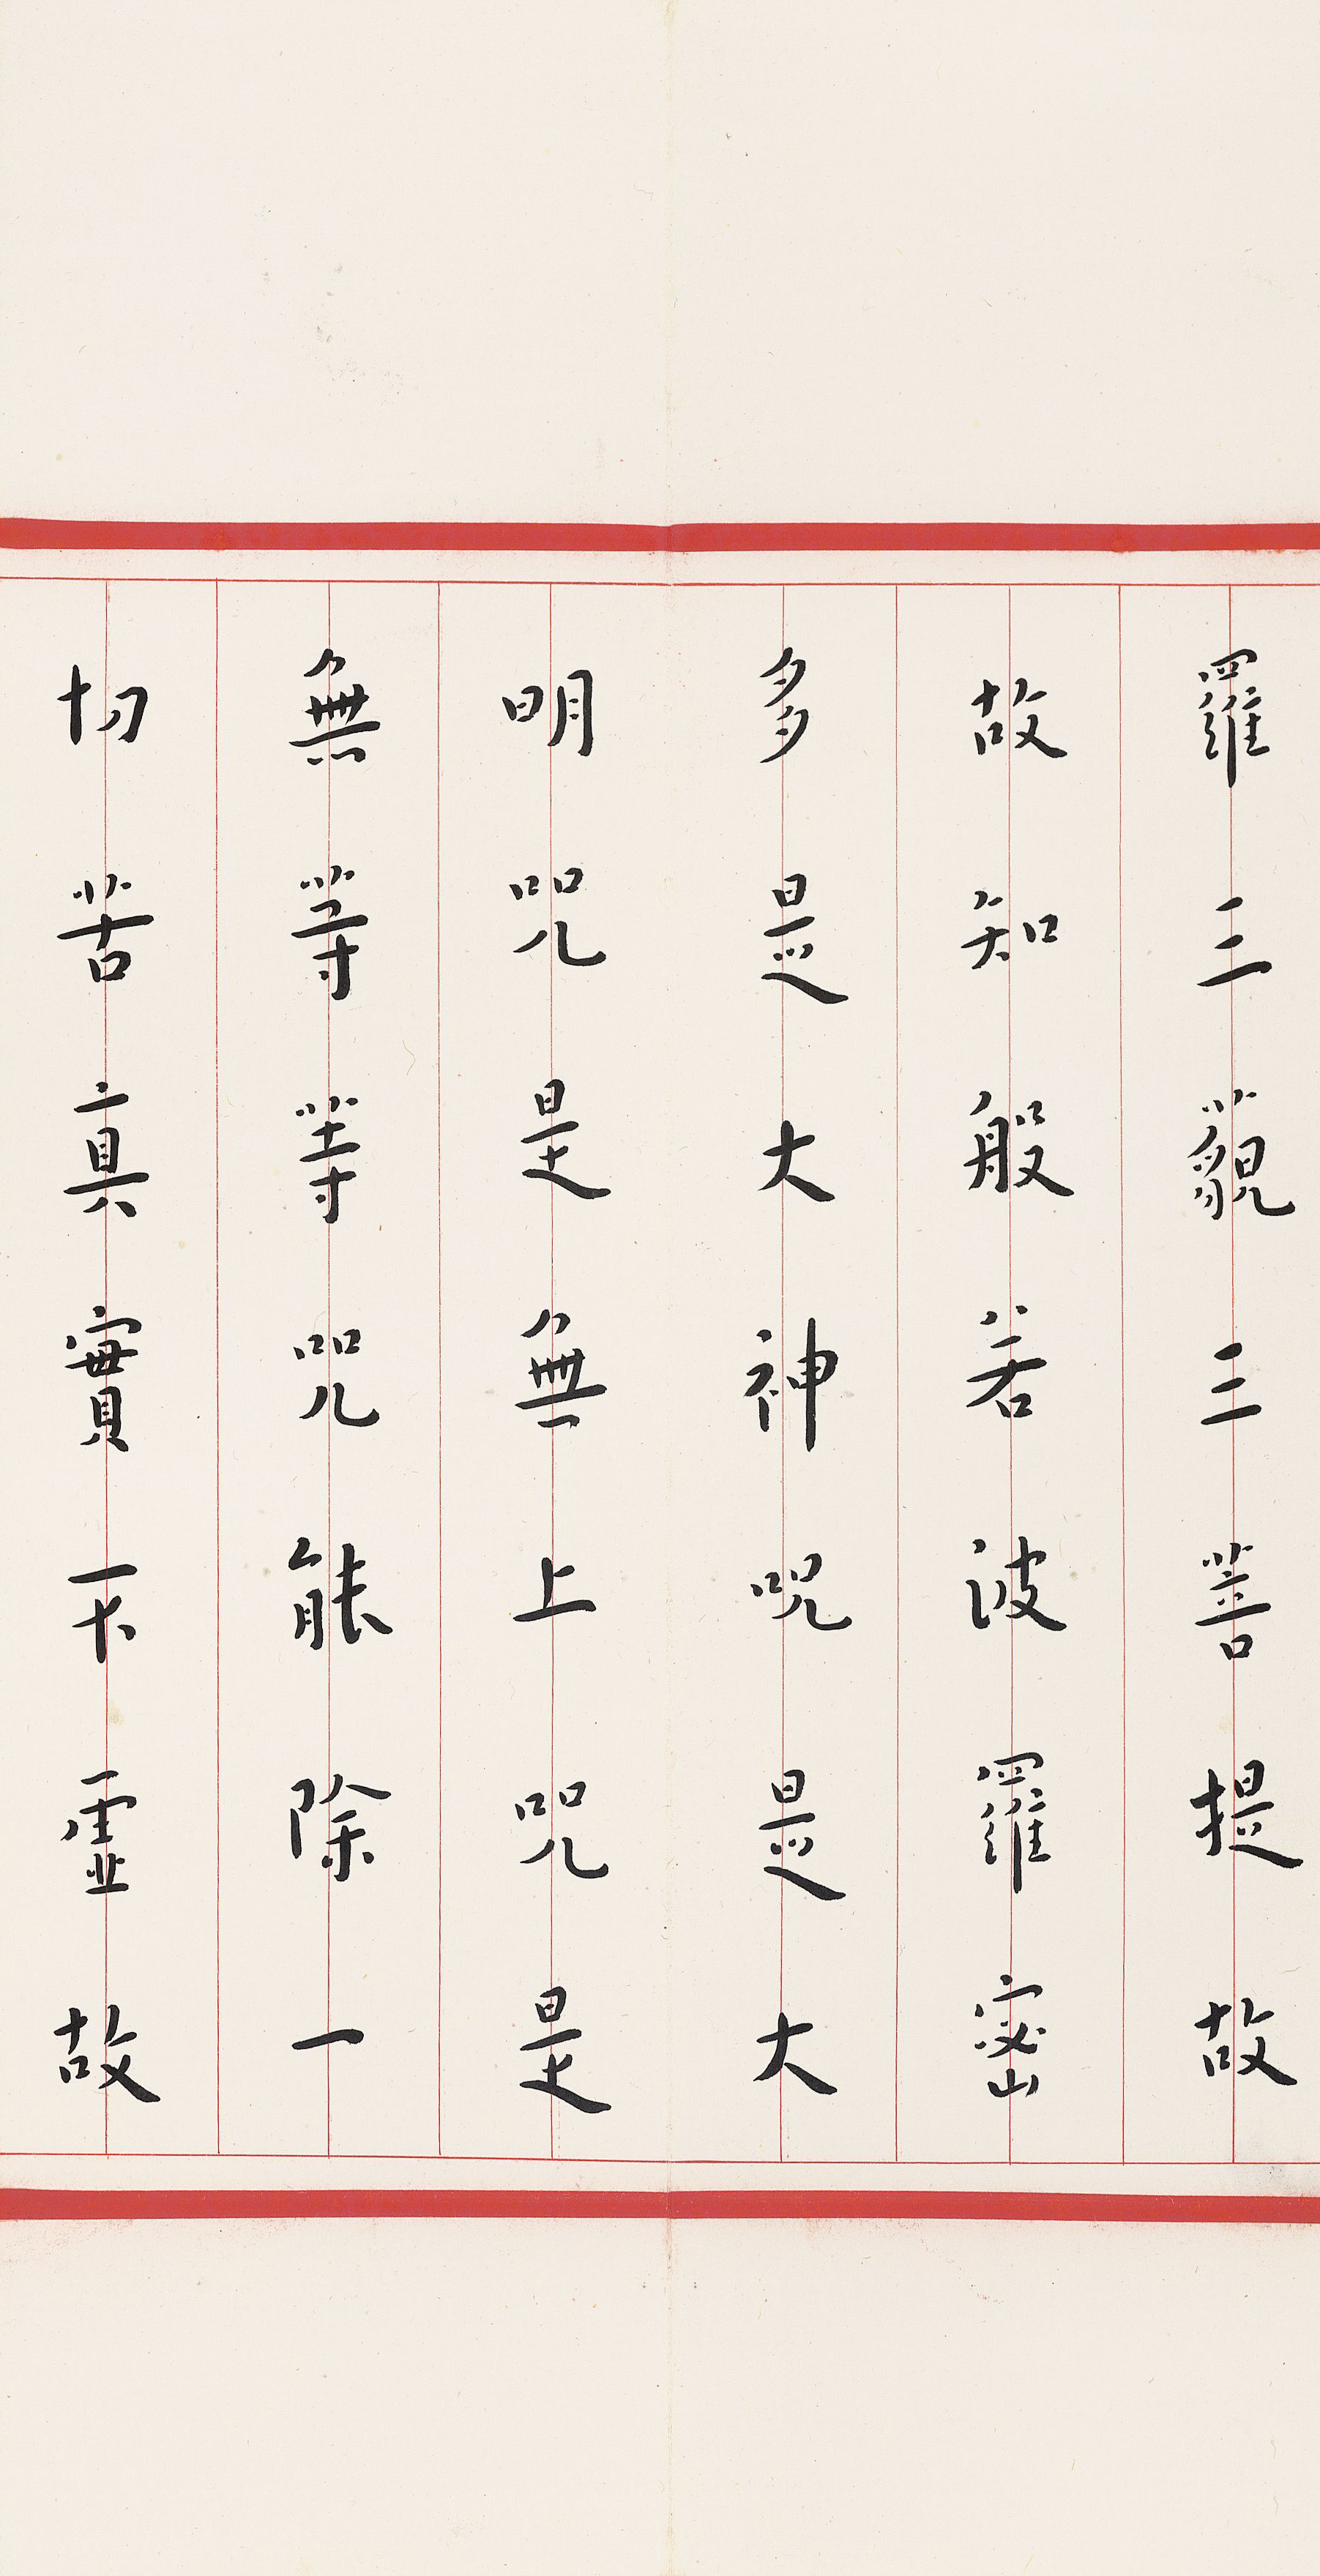 羅三藐三菩提故
故知般若波羅蜜
多是大神呪是大
明咒是無上咒是
無等等咒能除一
切苦真實不虛故